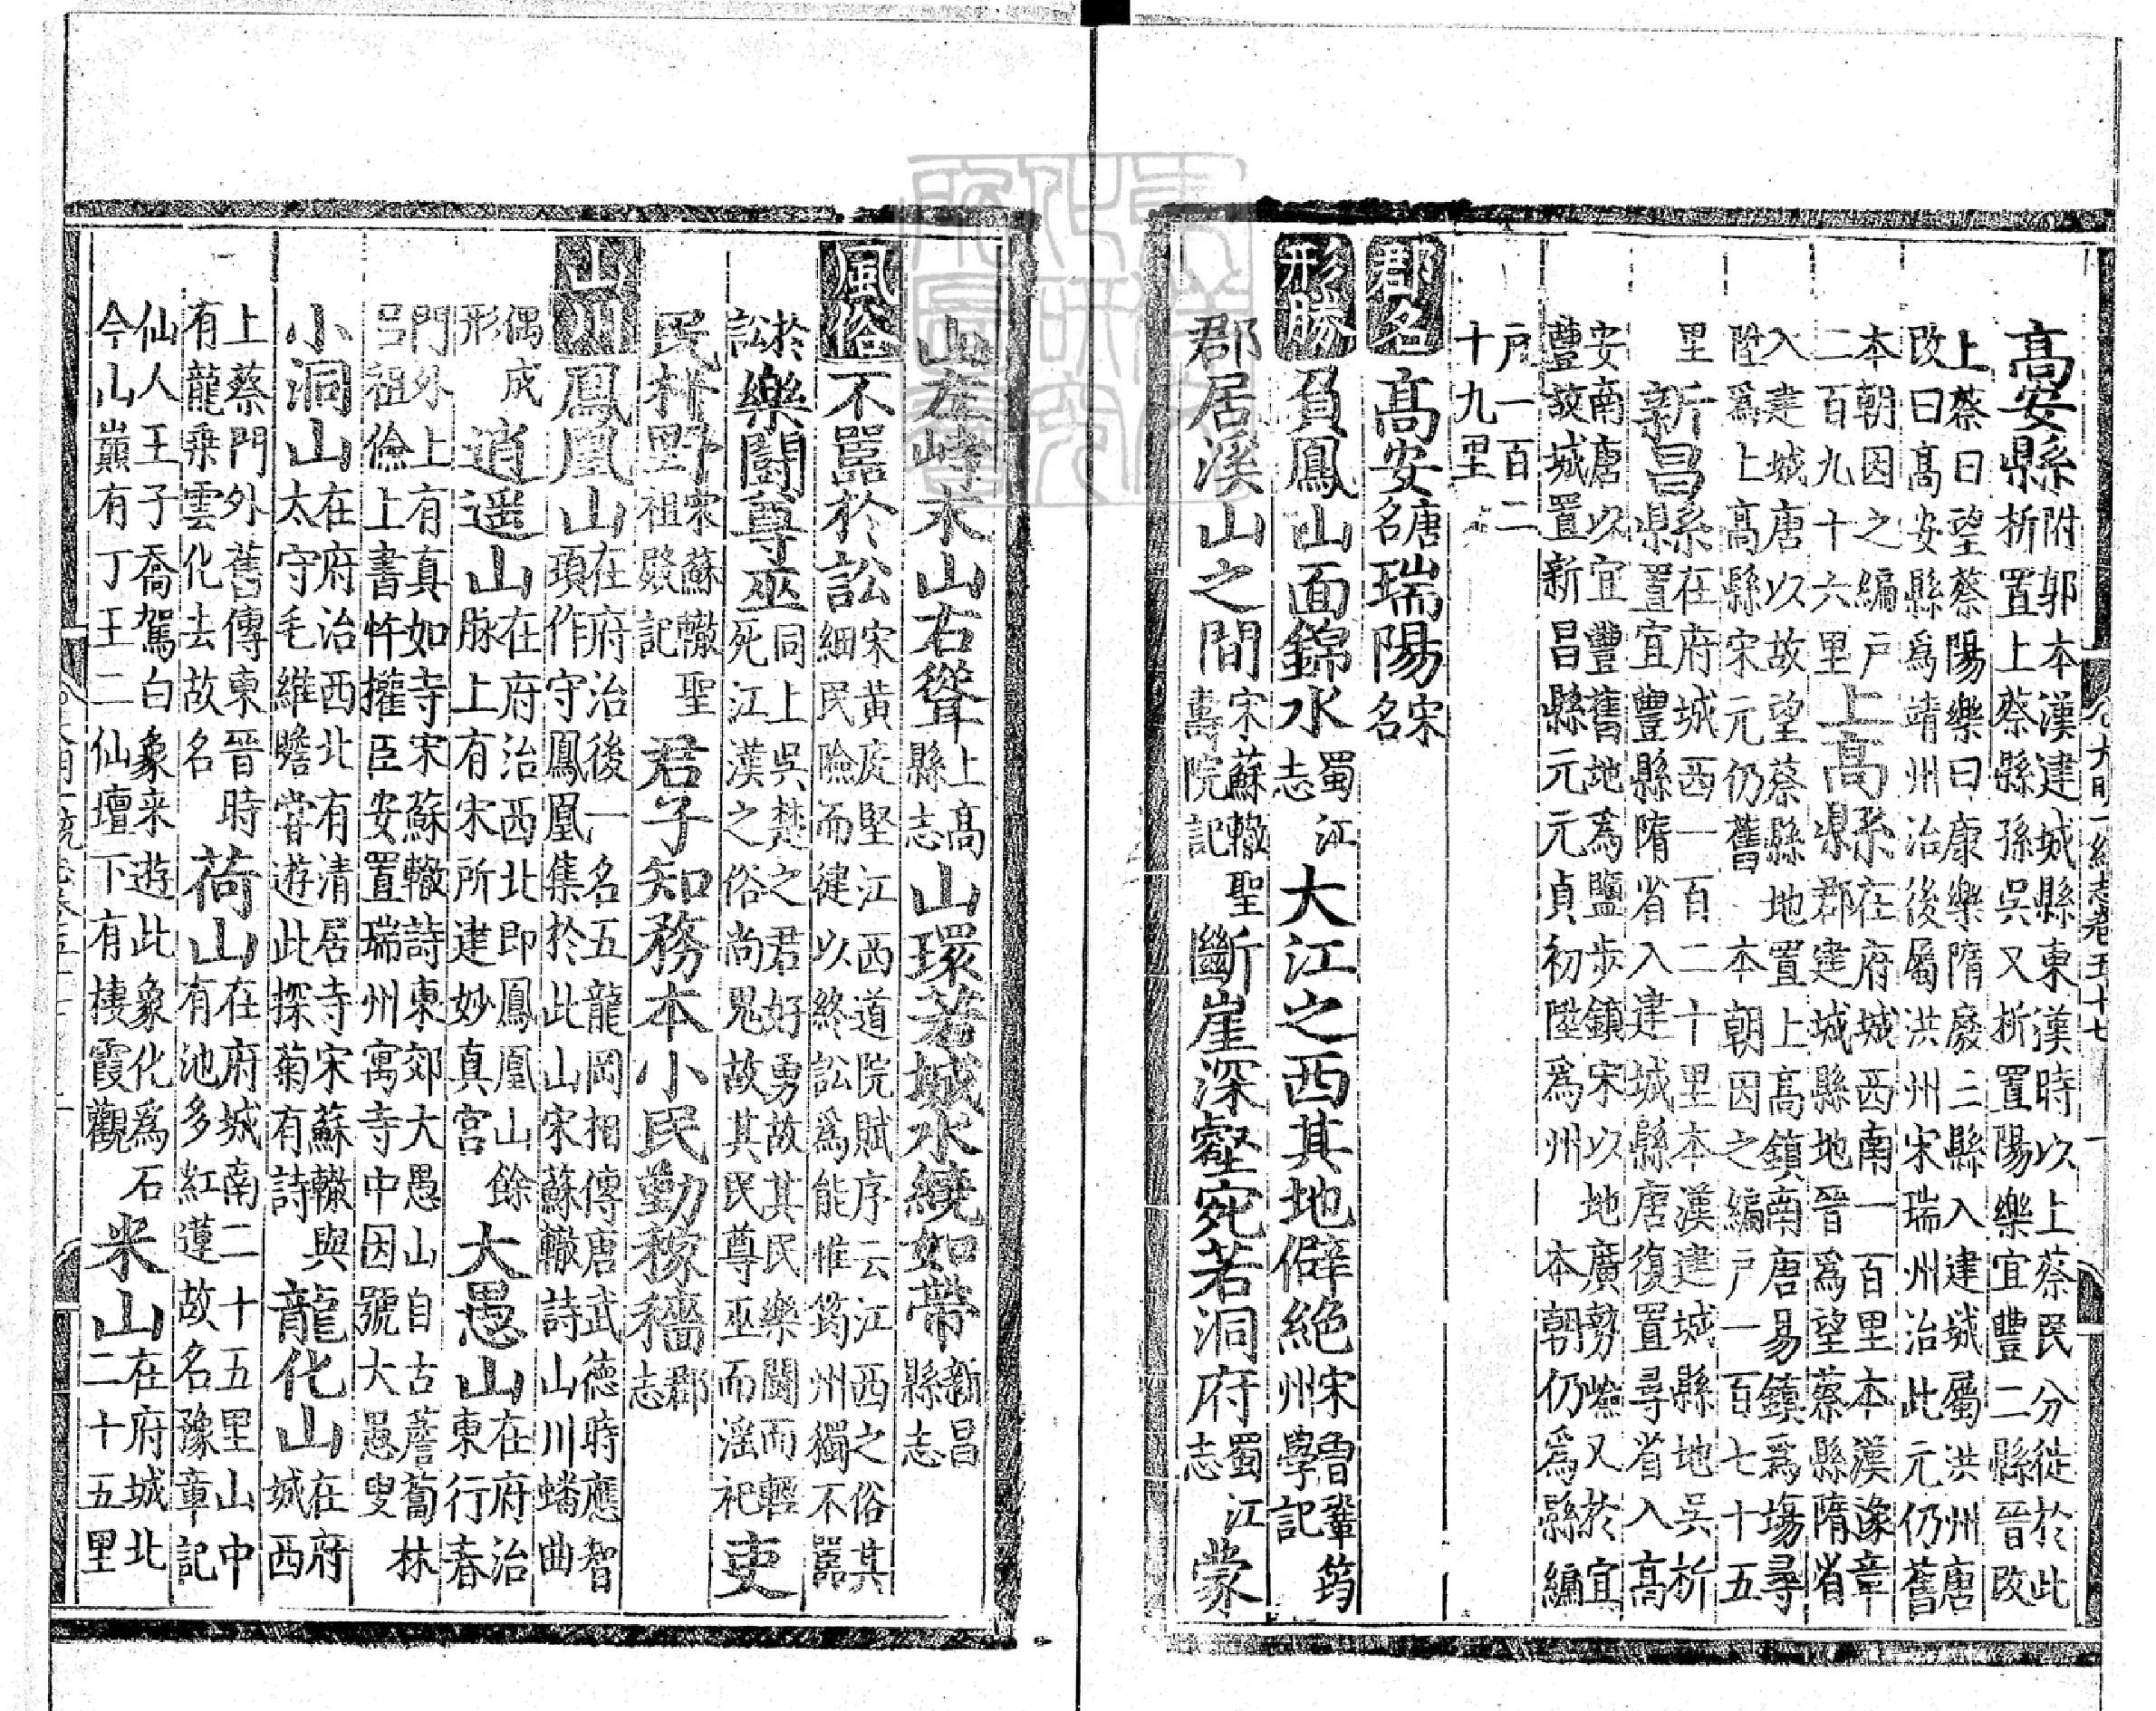 高安縣附郭本漢建城縣東漢時以上蔡民分徙於此析置上蔡縣孫吳又析置陽樂宜豐二縣晉改
上蔡曰望蔡陽樂曰康樂隋廢二縣入建城屬洪州唐改曰高安縣為靖州治後屬洪州宋瑞州治此元仍舊
本朝因之編戶二百九十六里上高縣在府城西南一百里本漢豫章郡建城縣地晉為望蔡縣隋省
入建城唐以故望蔡縣地置上高鎮南唐易鎮為塲尋陞為上高縣宋元仍舊 本朝因之編戶一百七十五
里新昌縣在府城西一百二十里本漢建城縣地吳析置宜豐縣隋省入建城縣唐復置尋省入高
安南唐以宜豐舊地為鹽步鎮宋以地廣勢嶮又於宜豐故城置新昌縣元元貞初陞為州 本朝仍為縣編
戶一百二十九里
郡名 高安唐名瑞陽宋名
形勝 負鳳山面錦水蜀江志大江之西其地僻絶宋曾鞏筠州學記
郡居溪山之間宋蘇轍聖壽院記斷崖深壑宛若洞府蜀江志蒙
山左峙末山右聳上高縣志山環若城水繞如帶新昌縣志
風俗 不囂於訟宋黃庭堅江西道院賦序云江西之俗其細民險而健以終訟為能惟筠州獨不囂
於訟樂鬪尊巫同上吳楚之君好勇故其民樂鬪而輕死江漢之俗尚鬼故其民尊巫而淫祀吏
民朴野宋蘇轍聖祖殿記君子知務本小民勤稼穡郡志
山川 鳳凰山在府治後一名五龍岡相傳唐武德時應智頊作守鳳凰集於此山宋蘇轍詩山川蟠曲
偶成形逍遥山在府治西北即鳳凰山餘脉上有宋所建妙真宮大愚山在府治東行春
門外上有真如寺宋蘇轍詩東郊大愚山自古薝蔔林呂祖儉上書忤權臣安置瑞州寓寺中因號大愚叟
小洞山在府治西北有清居寺宋蘇轍與太守毛維瞻甞遊此探菊有詩龍化山在府城西
上蔡門外舊傳東晉時有龍乗雲化去故名荷山在府城南二十五里山中有池多紅蓮故名豫章記
仙人王子喬駕白象来遊此象化為石今山巔有丁王二仙壇下有棲霞觀米山在府城北二十五里
大明一統志卷五十七